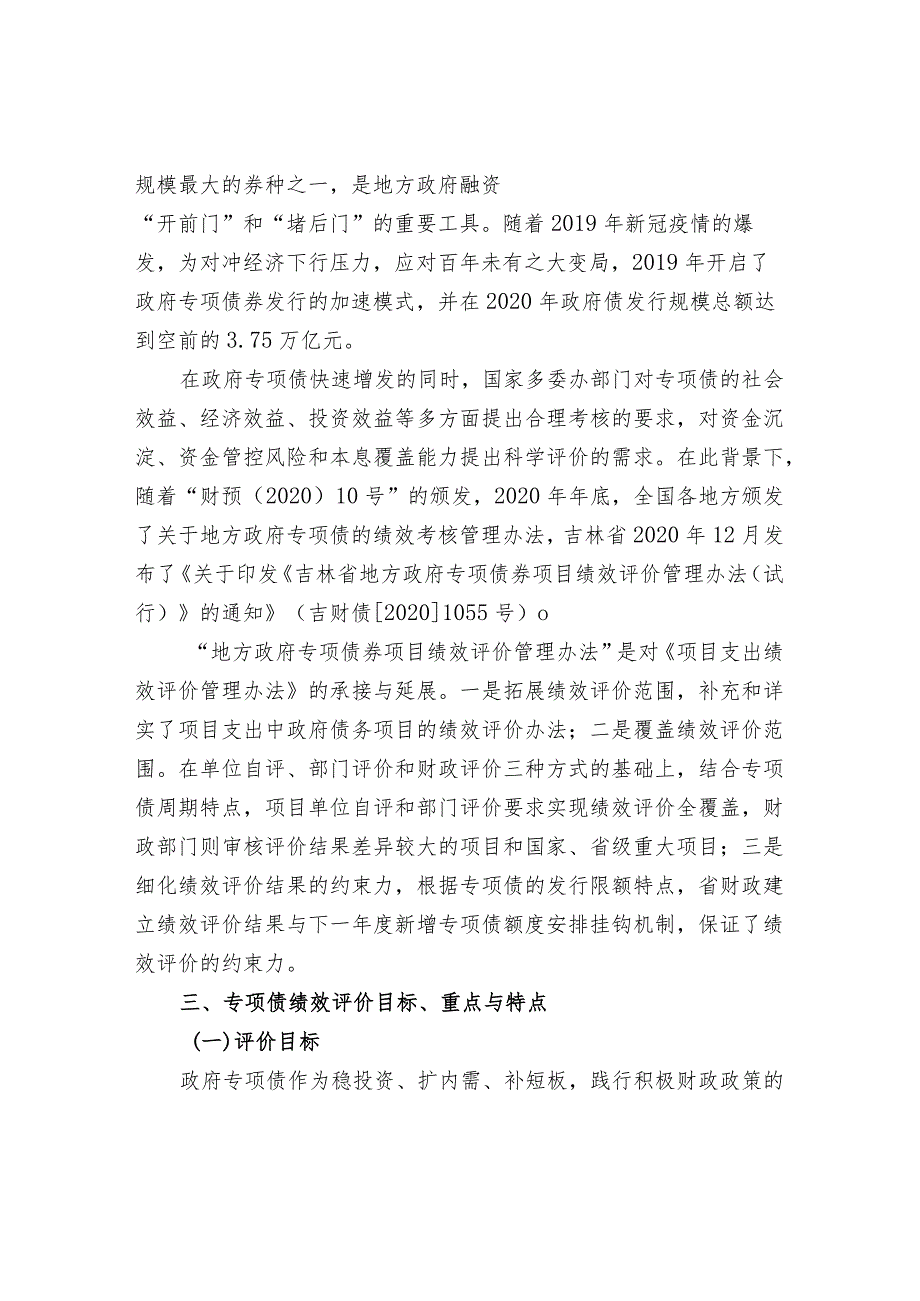 规模最大的券种之一，是地方政府融资
“开前门”和“堵后门”的重要工具。随着 2019 年新冠疫情的爆
发，为对冲经济下行压力，应对百年未有之大变局，2019 年开启了
政府专项债券发行的加速模式，并在 2020 年政府债发行规模总额达
到空前的 3.75 万亿元。
在政府专项债快速增发的同时，国家多委办部门对专项债的社会
效益、经济效益、投资效益等多方面提出合理考核的要求，对资金沉
淀、资金管控风险和本息覆盖能力提出科学评价的需求。在此背景下，
随着“财预（2020）10 号”的颁发，2020 年年底，全国各地方颁发
了关于地方政府专项债的绩效考核管理办法，吉林省 2020 年 12 月发
布了《关于印发《吉林省地方政府专项债券项目绩效评价管理办法（试
行）》的通知》（吉财债[2020]1055 号）o
“地方政府专项债券项目绩效评价管理办法”是对《项目支出绩
效评价管理办法》的承接与延展。一是拓展绩效评价范围，补充和详
实了项目支出中政府债务项目的绩效评价办法；二是覆盖绩效评价范
围。在单位自评、部门评价和财政评价三种方式的基础上，结合专项
债周期特点，项目单位自评和部门评价要求实现绩效评价全覆盖，财
政部门则审核评价结果差异较大的项目和国家、省级重大项目；三是
细化绩效评价结果的约束力，根据专项债的发行限额特点，省财政建
立绩效评价结果与下一年度新增专项债额度安排挂钩机制，保证了绩
效评价的约束力。
三、专项债绩效评价目标、重点与特点
(一)评价目标
政府专项债作为稳投资、扩内需、补短板，践行积极财政政策的